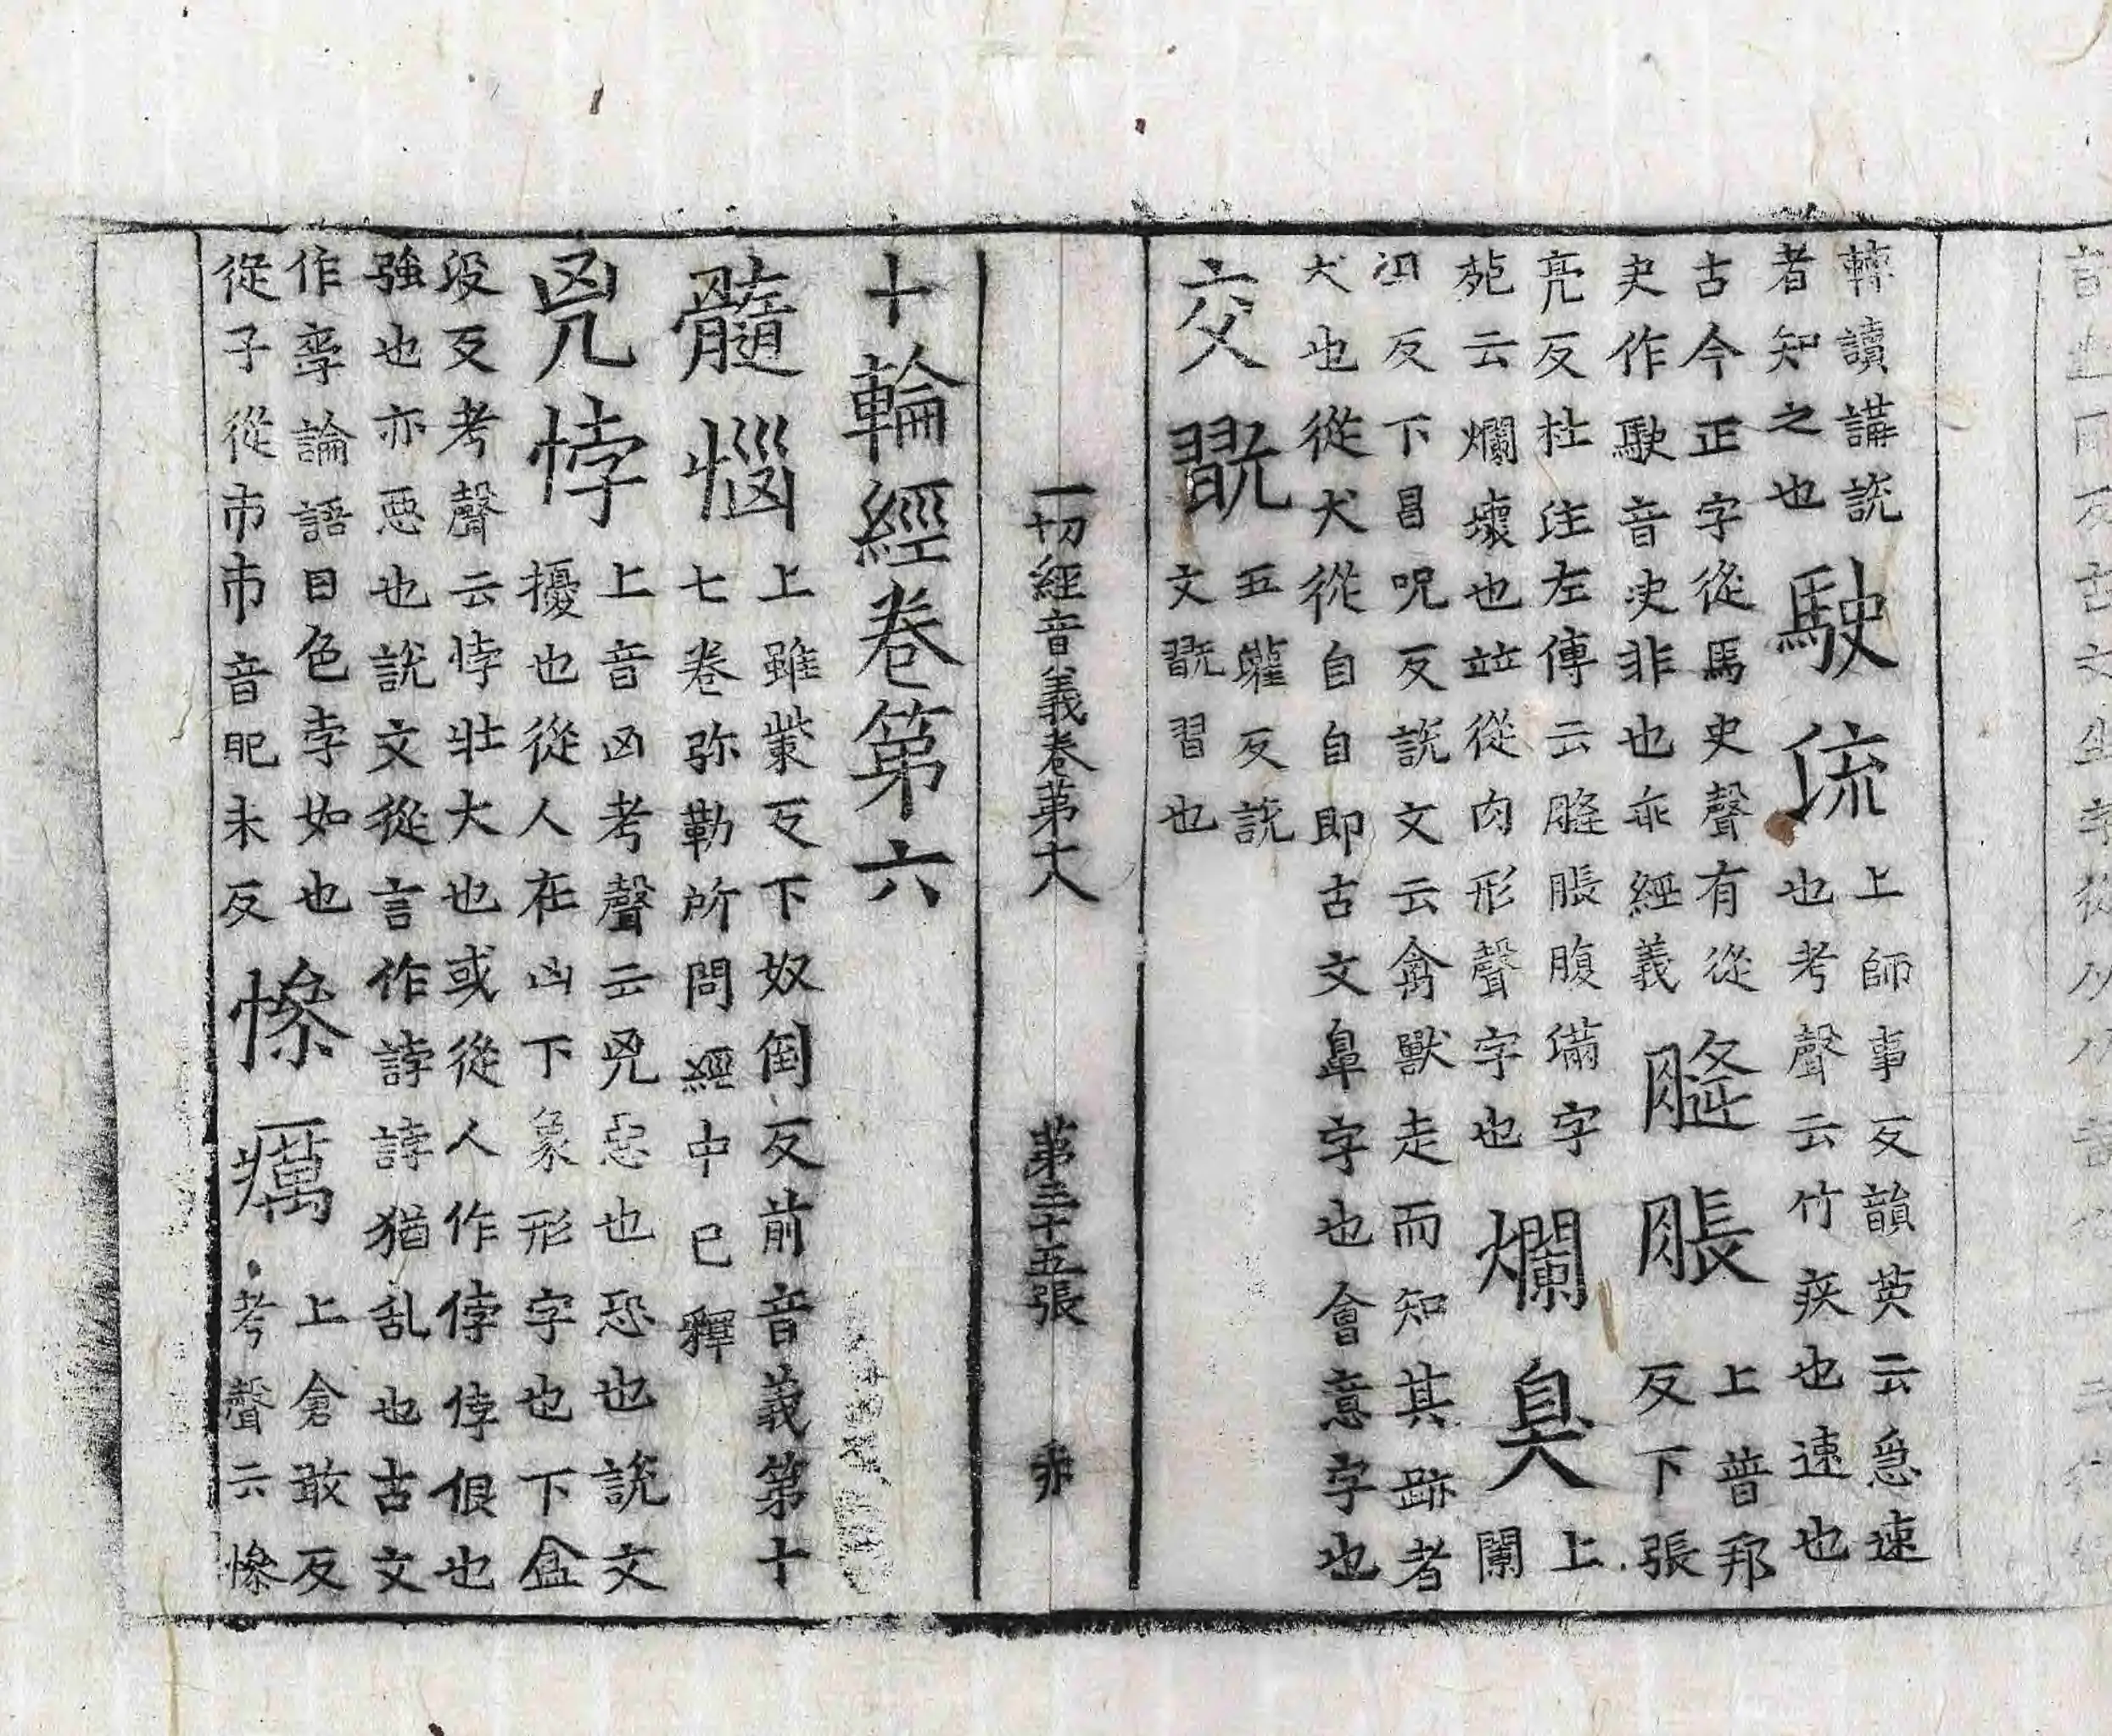 轉讀講説者知之也駛流上師事反韻英云急速也考聲云竹疾也速也
古今正字從馬史聲有從史作駛音史非也乖經義膖脹上普邦反下張
亮反杜注左傳云膖脹腹滿字苑云爛壞也並從肉形聲字也爛臭上闌
反下昌呪反説文云禽獸走而知其跡者犬也從犬從自自即古文鼻字也會意字也
交翫五鸛反説文翫習也
一切經音義卷第十八 第三十五張
十輪經卷第六
髓惱上雖紫反下奴倒反前音義第十七卷弥勒所問經中已釋
兇悖上音凶考聲云兇惡也恐也説文擾也從人在凶下象形字也下盆
没反考聲云悖壯大也或從人作㑄㑄佷也強也亦惡也説文從言作誖誖猶乱也古文
作孛論語曰色孛如也從子從巿巿音肥未反慘癘上倉敢反考聲云慘